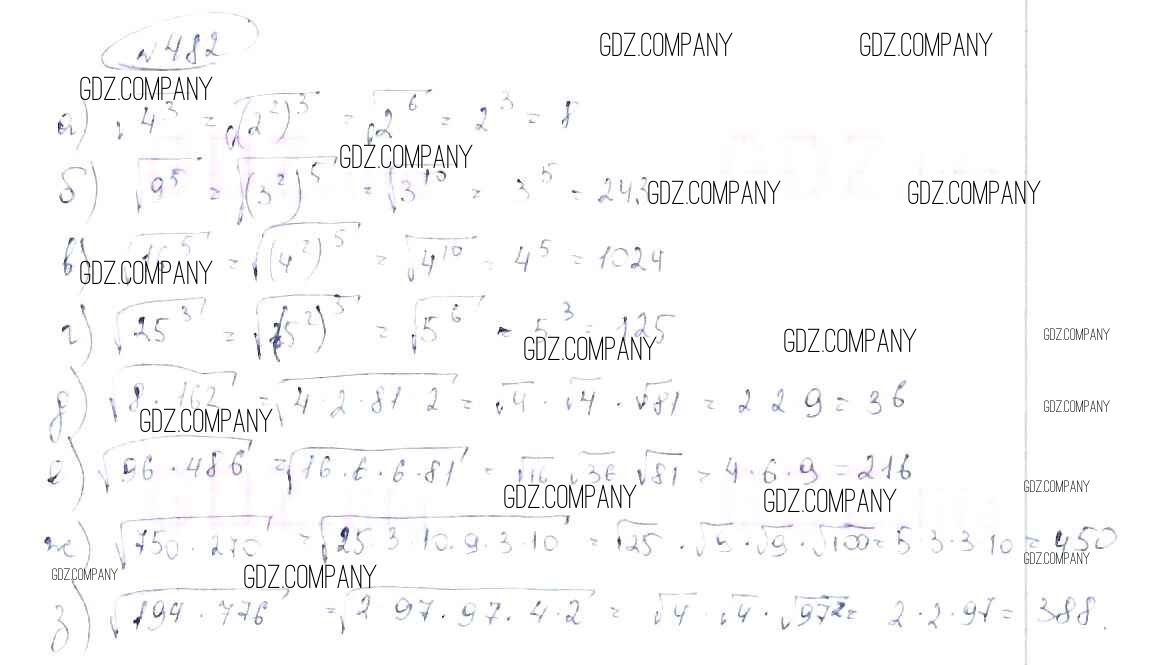 № 482
GDZ.COMPANY GDZ.COMPANY
GDZ.COMPANY
а) √4³ = √(2²)³ = √2⁶ = 2³ = 8
GDZ.COMPANY
б) √9⁵ = √(3²)⁵ = √3¹⁰ = 3⁵ = 243
GDZ.COMPANY GDZ.COMPANY
в) √16⁵ = √(4²)⁵ = √4¹⁰ = 4⁵ = 1024
GDZ.COMPANY
г) √25³ = √(5²)³ = √5⁶ = 5³ = 125
GDZ.COMPANY GDZ.COMPANY GDZ.COMPANY
д) √8·162 = √4·2·81·2 = √4·√4·√81 = 2 2 9 = 36
GDZ.COMPANY GDZ.COMPANY
е) √96·486 = √16·6·6·81 = √16 √36 √81 = 4·6·9 = 216
GDZ.COMPANY GDZ.COMPANY GDZ.COMPANY
ж) √750·270 = √25·3·10·9·3·10 = √25·√9·√9·√100 = 5·3·3 10 = 450
GDZ.COMPANY GDZ.COMPANY GDZ.COMPANY
з) √194·776 = √2·97·97·4·2 = √4·√4·√97² = 2·2·97 = 388.